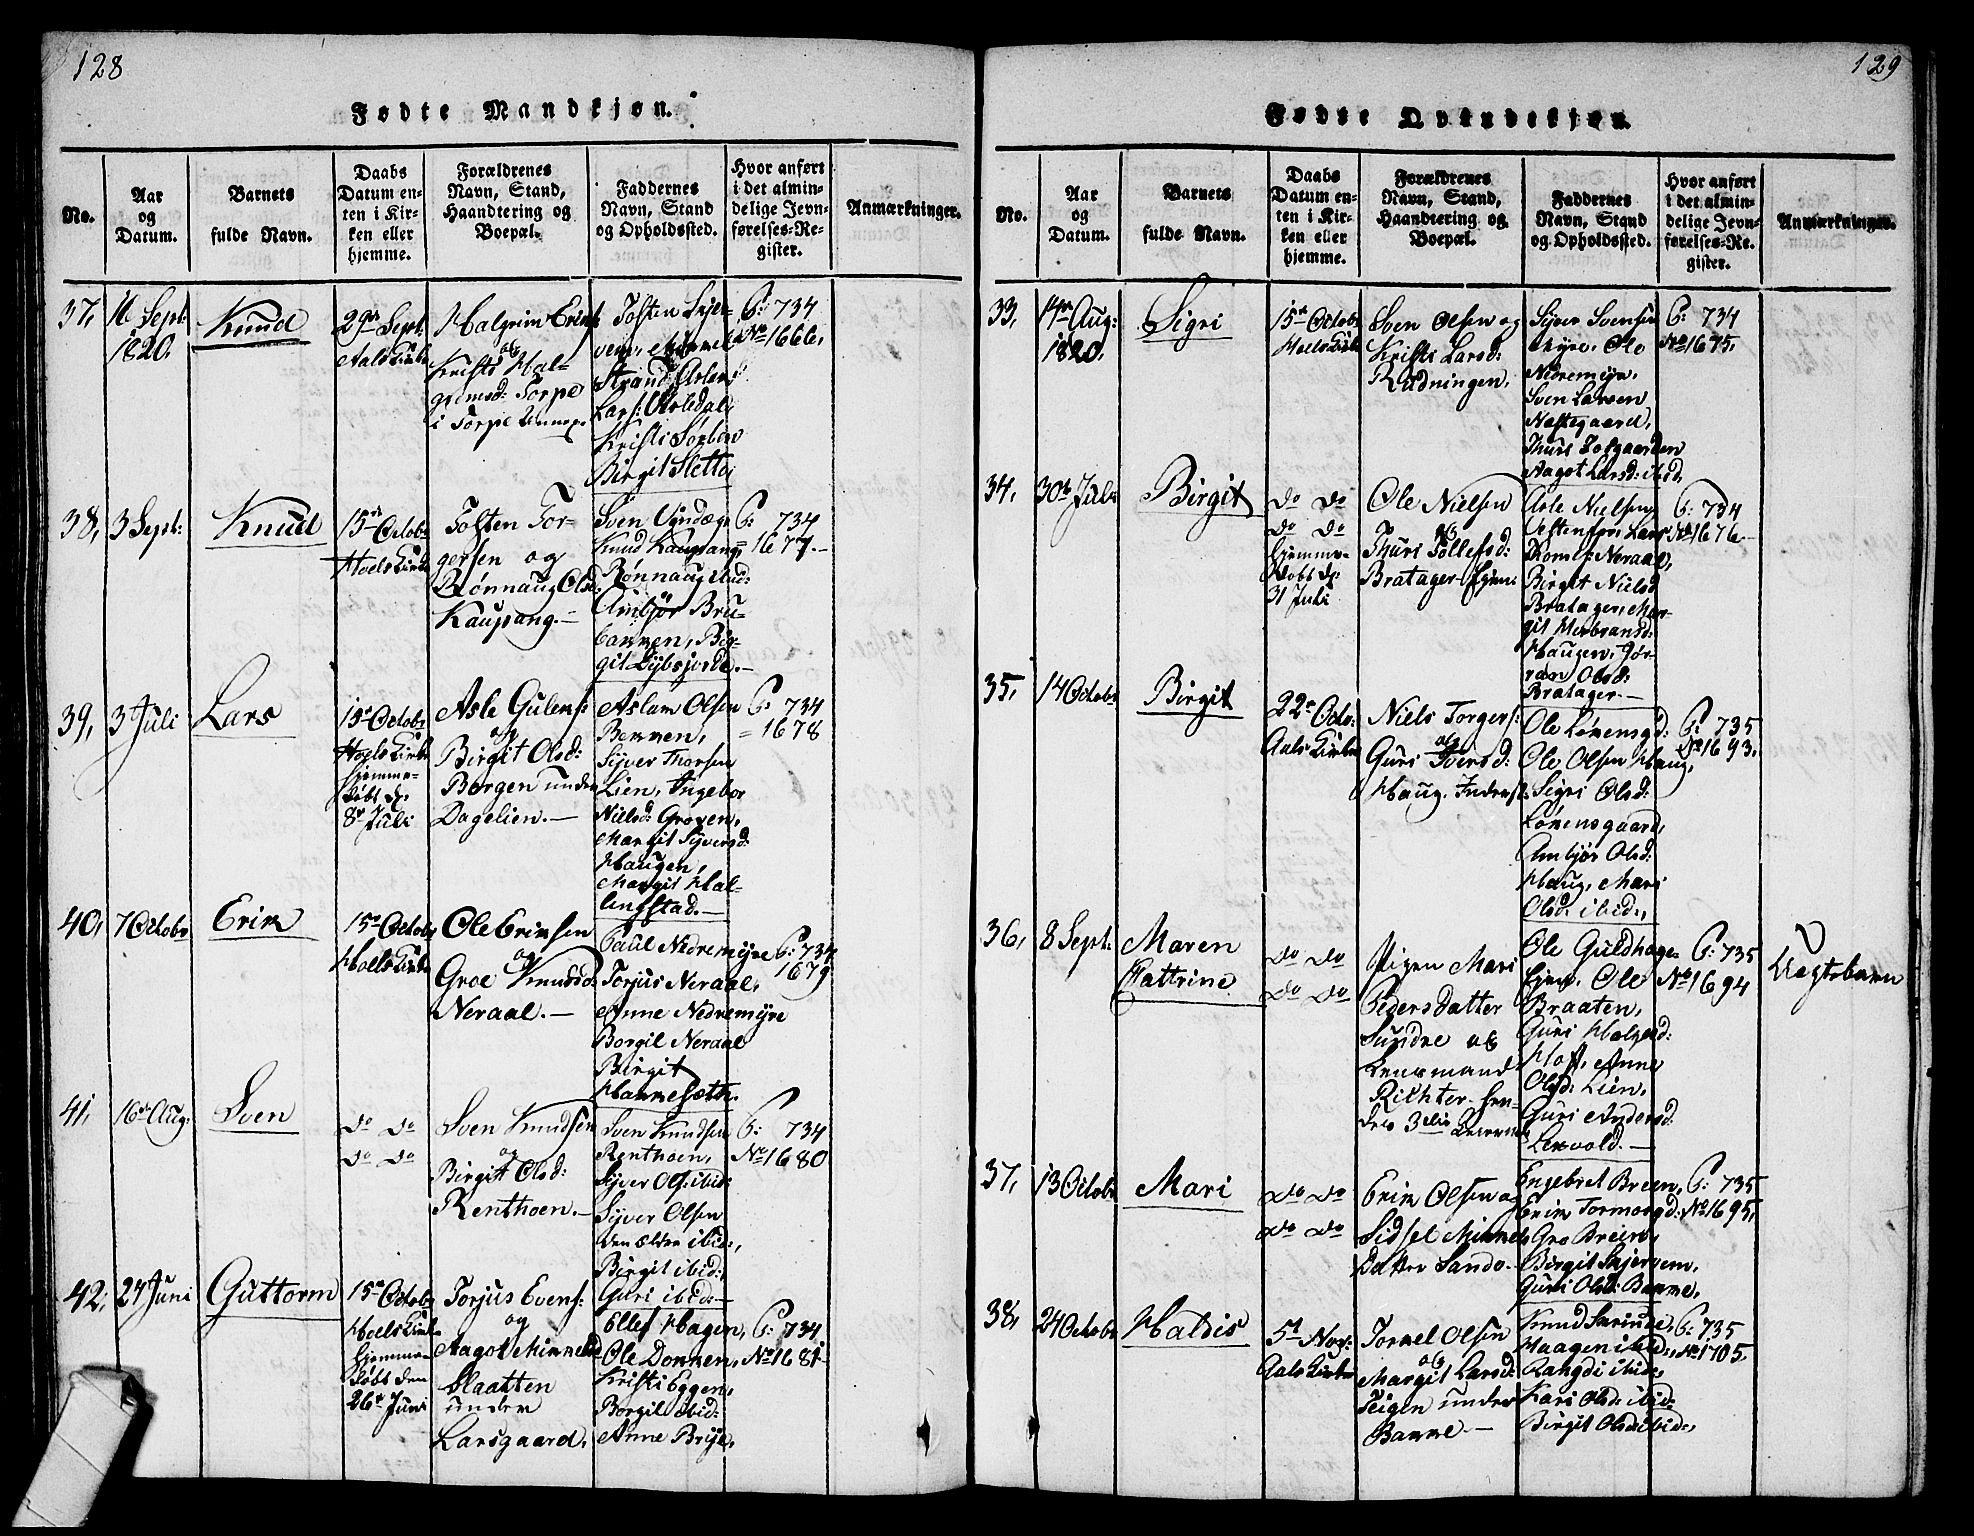 128
Fødte Mandkjøn.
No.
Aar
og
Datum.
Barnets
fulde Navn.
Daabs
Datum en-
ten i Kir-
ken eller
hjemme.
Forældrenes
Navn, Stand,
Haandtering og
Boepæl.
Faddernes
Navn, Stand
og Opholdssted.
Hvor anført
i det almin-
delige Jevn-
førelses-Re-
gister.
Anmærkninger.
37,
16 Sept:
1820.
Knud
29de Sept:
Aals Kirke
Halgrim Eriks:
og
Kristi Hal-
grimsd: Torpe
i Torpe
Tosten Skjer-
ven,
Strand, Aslak
Lars:
Kristi
Birgit Slette
P: 734
No 1666,
38,
3 Sept:
Knud
15de Octobr
Hoels Kirke
Tosten Tor-
gersen og
Rønnaug Olsd:
Kaupang.—
Sven
Knud Kaupang,
Rønnaug ibid:
Ambjør Bru-
bakken, Bir-
git
P: 734
= 1677.—
39,
3 Juli
Lars
15de Octobr
Hoels Kirke
hjemme-
døbt d:
8de Juli
Asle Gulens:
og
Birgit Olsd:
Bergen under
Dagelien.—
Aslam Olsen
Bekken,
Syver Thorsen
Lien, Ingebor
Nielsd: Groven,
Margit Syversd:
Haugen,
Margit Hal-
lingstad.—
P: 734
= 1678
40,
7 Octobr
Erik
15de Octobr
Hoels Kirke
Ole Eriksen
og
Groe Knudsd:
Neraal.—
Paul Nedremyre
Torjus Neraal,
Anne Nedremyre
Borgil Neraal
Birgit
P: 734
1679
41,
16de Aug:
Sven
do do
do do
Sven Knudsen
og
Birgit Olsd:
Renthoen.—
Sven Knudsen
Renthoen,
Syver Ols: ibid:
Syver Olsen
den ældre ibid:,
Birgit ibid:,
Guri ibid:—
P: 734
No 1680
42,
24 Juni
Guttorm
15de Octobr
Hoels Kirke
hjemme-
døbt den
26de Juni
Torjus Evens:
og
Aagot Mikkelsd:
Slaatten
under
Larsgaard,
Ellef Hagen,
Ole Dokken,
Kristi Eggen,
Borgil ibid:
Anne Brye,
P: 734
No 1681-
129
Fødte Qvindekjøn.
No.
Aar
og
Datum.
Barnets
fulde Navn.
Daabs
Datum en-
ten i Kir-
ken eller
hjemme.
Forældrenes
Navn, Stand,
Haandtering og
Boepæl.
Faddernes
Navn, Stand
og Opholdssted.
Hvor anført
i det almin-
delige Jevn-
førelses-Re-
gister.
Anmærkninger.
33,
14de Aug:
1820,
Sigri
15de Octobr
Hoels Kirke
Sven Olsen og
Kristi Larsd:
Rudningen,
Syver Svensen
Myre, Ole
Nedremyr,
Sven Larsen
Nestegaard,
Thuri Tofgaarden
Aagot Larsd: ibid,
P: 734
No 1675,
34,
30te Juli
Birgit
do do
do do
hjemme-
døbt d:
31 Juli
Ole Nielsen
og
Thuri Tollefsd:
Bratager
Asle Nielsen
Lars
Neraal,
Birgit Nielsd
Bratager, Mar-
git Herbransd:
Haugen, Jør-
ran Olsd:
Bratager.—
P: 734
No 1676.—
35,
14 Octobr
Birgit
22de Octo:
Aals Kirke
Niels Torgers:
og
Guri Iversd:
Haug,
Ole Løkensgd:
Ole Olsen Haug,
Sigri Olsd:
Løkensgaard,
Ambjør Olsd:
Haug, Mari
Olsd: ibid:,
P: 735
No 1693,
36,
8 Sept:
Maren
Cattrine
do do
do do
Pigen Mari
Pedersdatter
Sundre og
Lensmand
Richter
Ole Guldhage
Ole
Braaten,
Guri
Hoff, Anne
Olsd: Lien,
Guri Andersd:
P: 735
No 1694
Uægtebarn
37,
13 Octobr
Mari
do do
do do
Erik Olsen og
Sidsel Mikkels
Datter Sando.—
Engebret Breen,
Erik Tormorgd:
Gro Breien,
Birgit Skjerven,
Guri Olsd: Bakke,
P: 735
No 1695,
38,
24 Octobr
Haldis
5te Nov:
Aals Kirke
Torkel Olsen
og
Margit Larsd:
Teigen under
Bakke.—
Knud
Haagen ibid:,
Rangdi ibid:
Kari Olsd: ibid:
Birgit Olsd: ibid:,
P: 735
No 1705,